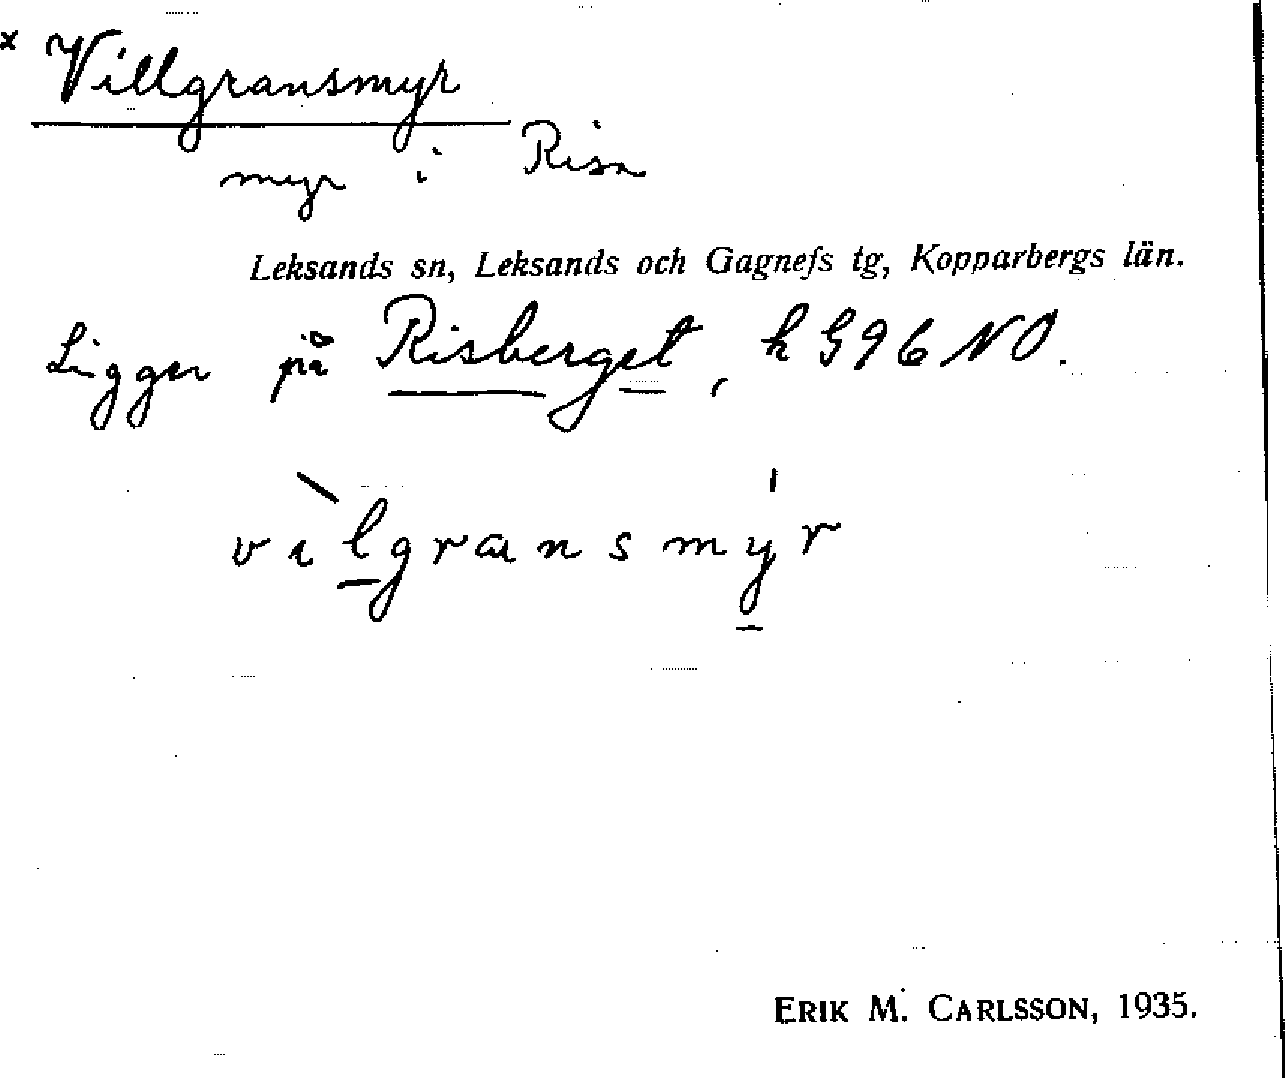 x Villgransmyr
myr i Risa
Leksands sn, Leksands och Gagnefs tg, Kopparbergs län.
Ligger på Risberget, k 596 NO.
vilgransmyr
ERIK M. CARLSSON, 1935.